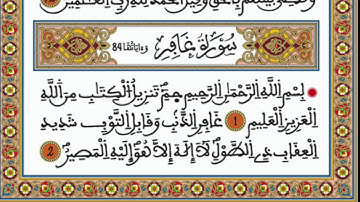 وَقُضِيَ بَيْنَهُم بِالْحَقِّ وَقِيلَ الْحَمْدُ لِلهِ رَبِّ الْعَٰلَمِينَ
سُورَةُ غَافِرٍ وَءَايَاتُهَا 84
بِسْمِ اللَّهِ الرَّحْمَٰنِ الرَّحِيمِ حَمِٓ تَنزِيلُ الْكِتَٰبِ مِنَ اللَّهِ
الْعَزِيزِ الْعَلِيمِ 1 غَافِرِ الذَّنۢبِ وَقَابِلِ التَّوْبِ شَدِيدِ
الْعِقَابِ ذِي الطَّوْلِ لَآ إِلَٰهَ إِلَّا هُوَ إِلَيْهِ الْمَصِيرُ 2